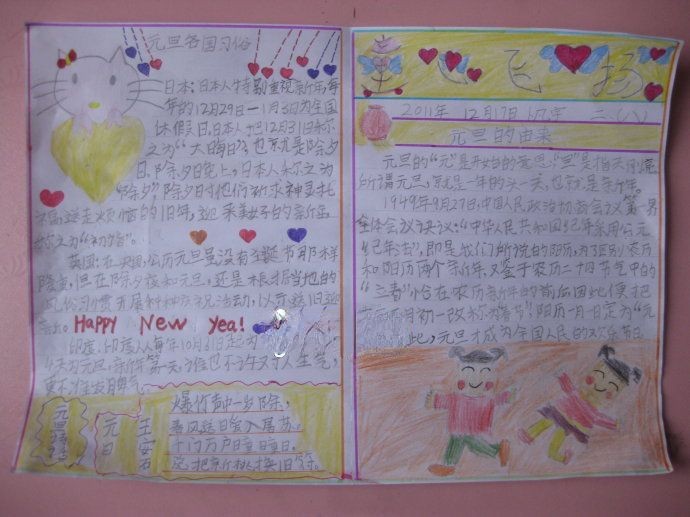 元旦各国习俗
日本：日本人特别重视新年每
年的12月29日—1月3日为全国
休假日，日本人把12月31日称
之为“大晦日”，也就是除夕
日，除夕日晚上，日本人称之为
“除夜”，除夕时他们祈求神灵托
福送走烦恼的旧年，迎来美好的新年
称之为“初诣”。
英国：在英国，公历元旦虽没有圣诞节那样
隆重，但在除夕夜和元旦，还是根据当地的
风俗习惯开展种种庆祝活动，以示送旧迎
新。Happy New Yea!
印度：印度人每年10月31日起为
4天为元旦，第一天，谁也不许对人生气，
更不准发脾气
元旦
元日
王安石
爆竹声中一岁除，
春风送日暖入屠苏。
千门万户曈曈日，
总把新桃换旧符。
飞扬
2011年 12月17日
元旦的由来
元旦的“元”是开始的意思，“旦”是指天
所谓元旦，就是一年的头一天，也就是新年。
1949年9月27日，中国人民政治协商会议第一界
全体会议决议：“中华人民共和国纪年采用公元
纪年法”，即是我们所说的阳历，为了区别农历
和阳历两个新年，又鉴于农历二十四节气中的
“立春”恰在农历新年的前后因此便把
农历正月初一改称为“春节”，阳历一月一日定为“元
此，元旦才成为全国人民的欢乐节日